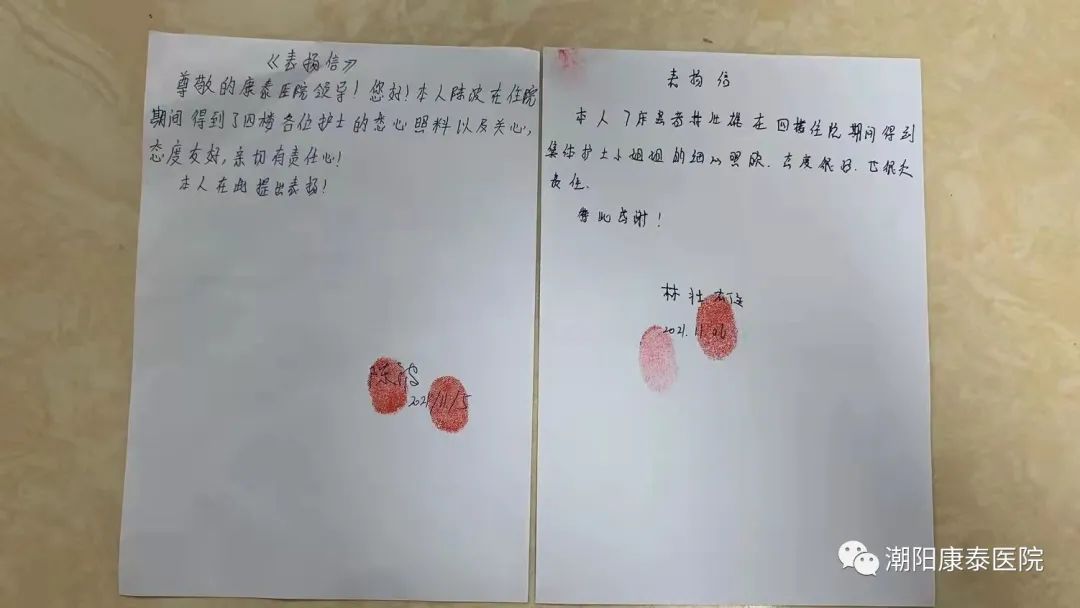 《表扬信》
尊敬的康泰医院领导！您好！本人陈波在住院
期间得到了四楼各位护士的悉心照料以及关心，
态度友好，亲切有责任心！
本人在此提出表扬！
陈波
2021/11/5
表扬信
本人 在四楼住院期间得到
集体护士小姐姐的细心照顾.态度很好.
责任.
在此感谢！
林壮雄
2021.11.06
潮阳康泰医院